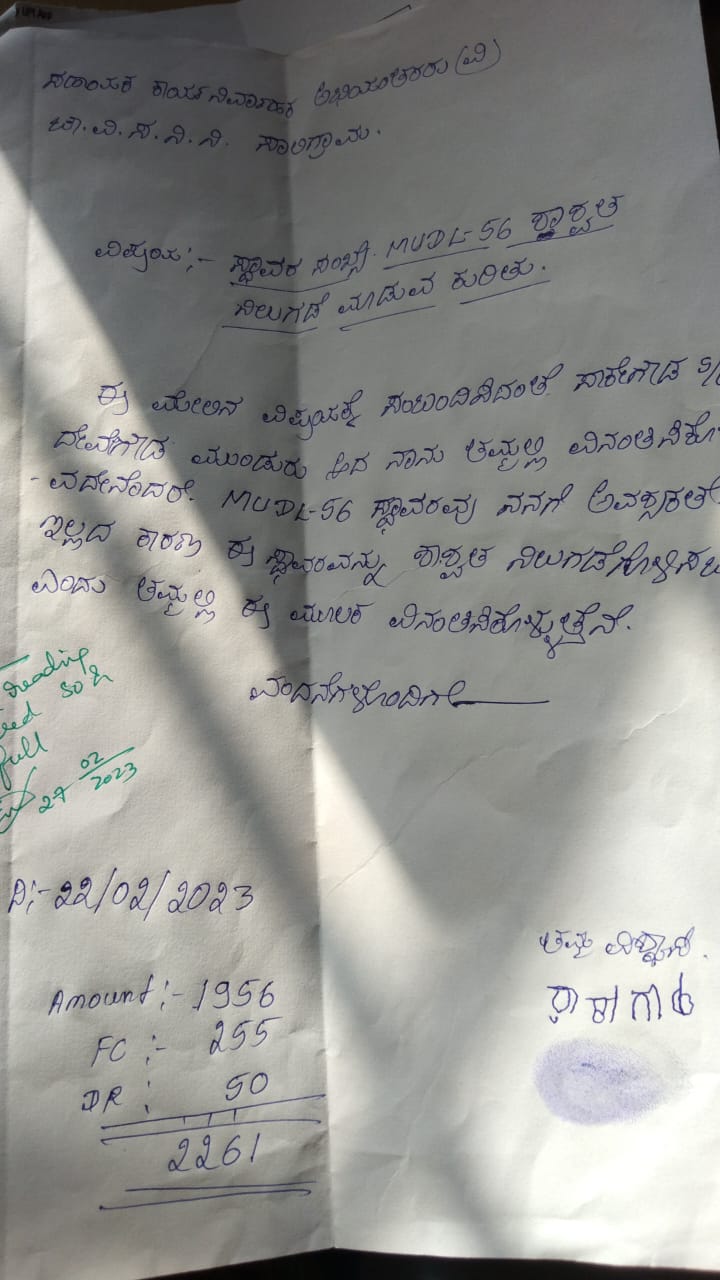 ಸಹಾಯಕ ಕಾರ್ಯನಿರ್ವಾಹಕ ಅಭಿಯಂತರರು (ವಿ)
ಚಾ.ವಿ.ಸ.ನಿ.ನಿ. ಸಾಲಿಗ್ರಾಮ.
ವಿಷಯ:- ಸ್ಥಾವರ ಸಂಖ್ಯೆ MUDL-56 ಶಾಶ್ವತ
ನಿಲುಗಡೆ ಮಾಡುವ ಕುರಿತು.
ಈ ಮೇಲಿನ ವಿಷಯಕ್ಕೆ ಸಂಬಂದಿಸಿದಂತೆ S/
ದೇವೇಗೌಡ ಮುಂಡುರು ಆದ ನಾನು ತಮ್ಮಲ್ಲಿ ವಿನಂತಿಸಿಕೊ
-ವದೇನೆಂದರೆ. MUDL-56 ಸ್ಥಾವರವು ನನಗೆ ಅವಶ್ಯಕತೆ
ಇಲ್ಲದ ಕಾರಣ ಈ ಸ್ಥಾವರವನ್ನು ಶಾಶ್ವತ ನಿಲುಗಡೆಗೊಳಿಸಬ
ಎಂದು ತಮ್ಮಲ್ಲಿ ಈ ಮೂಲಕ ವಿನಂತಿಸಿಕೊಳ್ಳುತ್ತೇನೆ.
ವಂದನೆಗಳೊಂದಿಗೆ
reading
full
27 02/2023
ದಿ:-22/02/2023
ತಮ್ಮ ವಿಶ್ವಾಸಿ.
Amount:- 1956
FC :- 255
DR : 50
2261